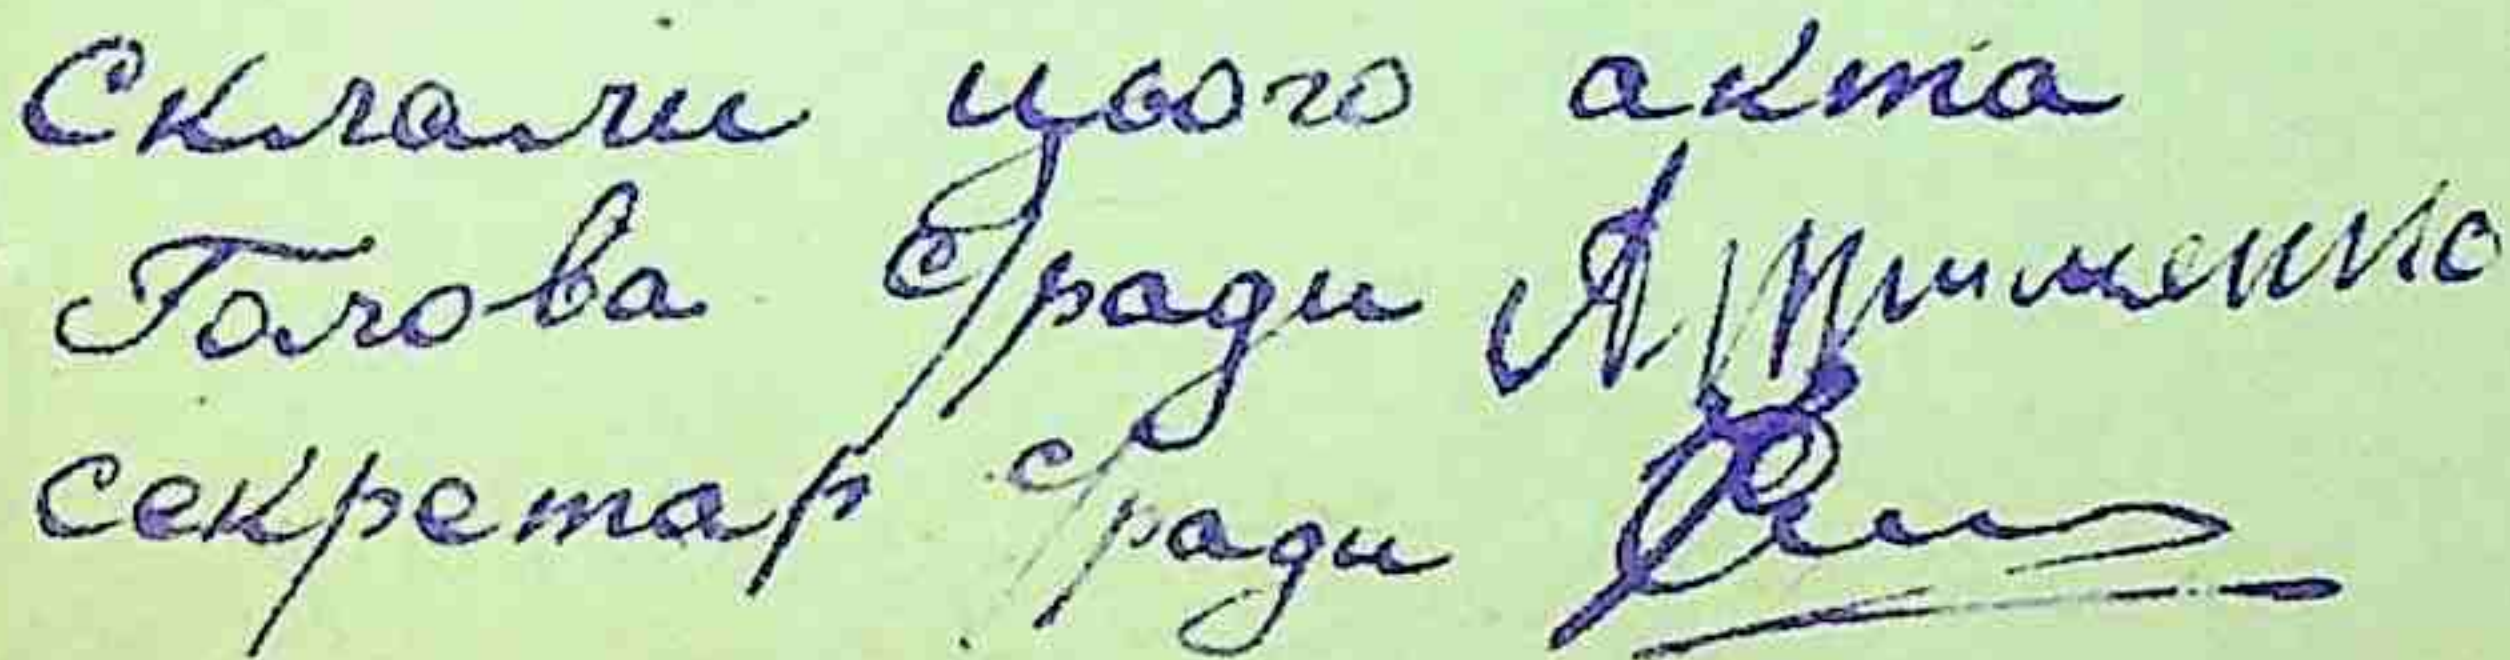 Склали цього акта
Голова с/ради А.
секретар с/ради